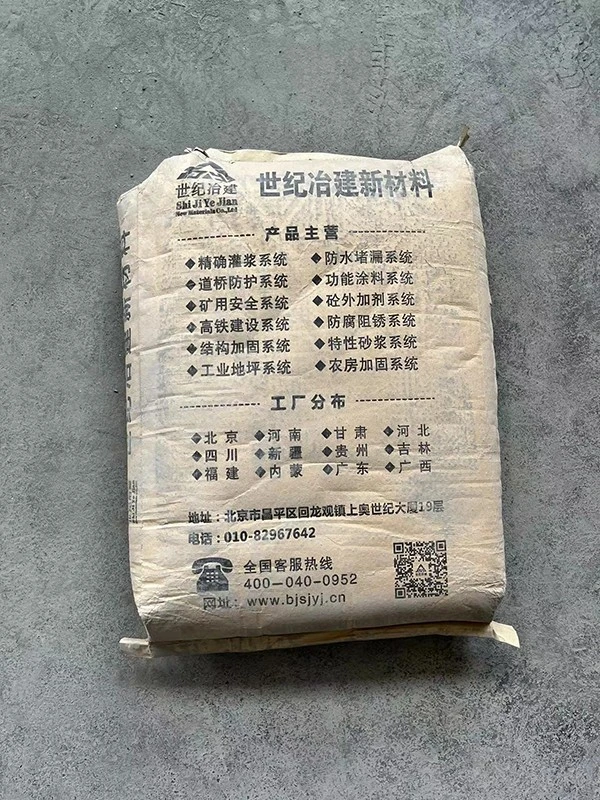 世纪冶建
Shi Ji Ye Jian
New Materials Co., Ltd
世纪冶建新材料
产品主营
◆精确灌浆系统 ◆防水堵漏系统
◆道桥防护系统 ◆功能涂料系统
◆矿用安全系统 ◆砼外加剂系统
◆高铁建设系统 ◆防腐阻锈系统
◆结构加固系统 ◆特性砂浆系统
◆工业地坪系统 ◆农房加固系统
工厂分布
◆北京 ◆河南 ◆甘肃 ◆河北
◆四川 ◆新疆 ◆贵州 ◆吉林
◆福建 ◆内蒙 ◆广东 ◆广西
地址：北京市昌平区回龙观镇上奥世纪大厦19层
电话：010-82967642
全国客服热线
400-040-0952
网址：www.bjsjyj.cn